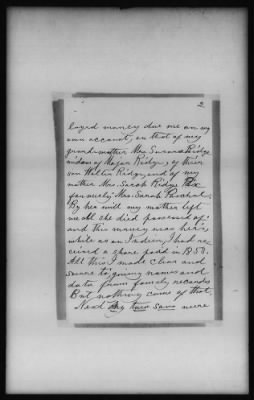 2
loyd money due me on my
own account, on that of my
grand-mother Mrs Susana Ridge
widow of Major Ridge, of their
son Walter Ridge, and of my
mother Mrs. Sarah Ridge Pix
formerly Mrs. Sarah Paschal.
By her will my mother left
me all she died possessed of
and this money was hers,
while as an Indian, I had re-
ceived a share paid in 1850.
All this I made clear and
swore to, giving names and
data from family records
But nothing came of that.
Next my two sons were